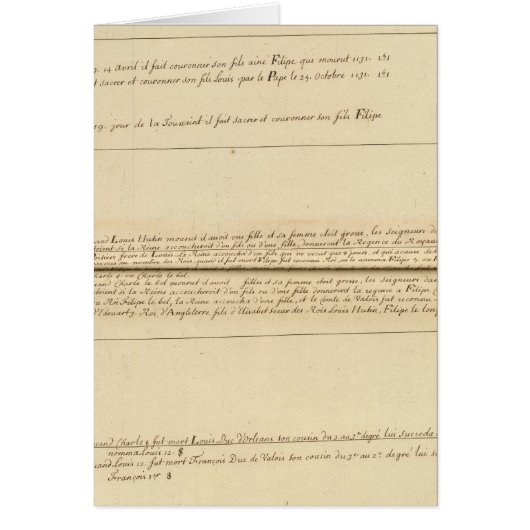 9. 14 avril il fait couronner son fils ainé Filipe qui mourut 1131.
sacrer et couronner son fils Louis par le Pape le 25. Octobre 1131.
19. jour de la Toussaint il fait sacrer et couronner son fils Filipe
and Louis Hutin mourut il avoit une fille et sa femme étoit grosse, les Seigneurs de
doient si la Reine accoucheroit d'un fils ou d'une fille, donnerent la Regence du Royau
Poitiers frere de Louis. La Reine accoucha d'un fils qui ne vecut que 8 jours, et qui
au nombre des Rois, quand il fut mort Filipe fut reconnu Roi, on le nomma Filipe 5. ou
Charle 4. ou Charle le bel.
and Charle le bel mourut il avoit filles et sa femme étoit grosse, les seigneurs
doient si la Reine accoucheroit d'un fils ou d'une fille donnerent la regence a Filipe
du Roi Filipe le bel, la Reine accoucha d'une fille, et le Comte de Valois fut reconnu
d'Edouart 3. Roi d'Angleterre fils d'Elisabet soeur des Rois Louis Hutin, Filipe le long
uand Charle 8 fut mort Louis Duc d'Orleans son cousin du 2 au 3e degré lui succeda
nomma Louis 12.
uand Louis 12. fut mort François Duc de Valois son cousin du 3e au 2e degré lui
François 1er